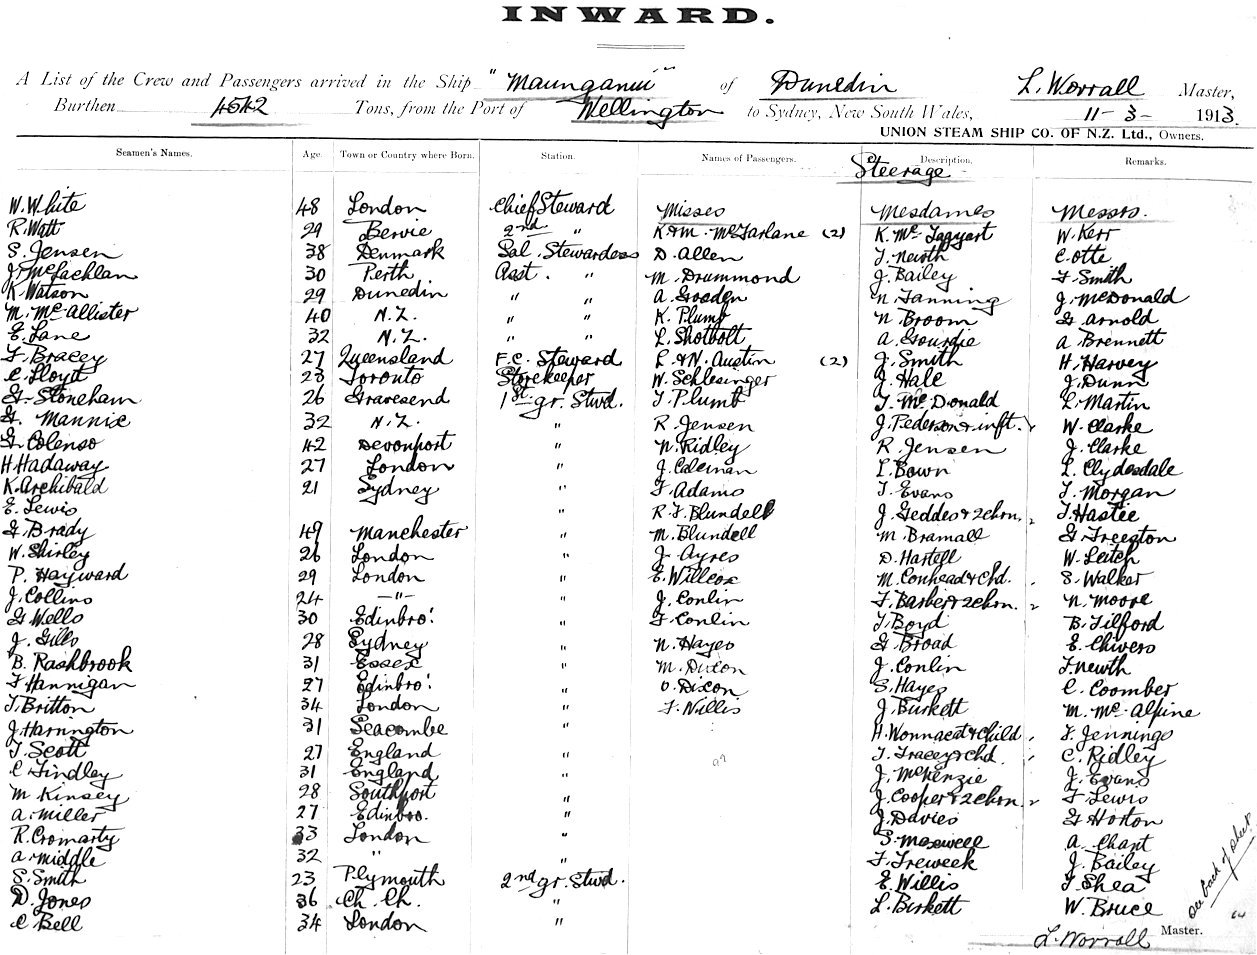 INWARD.
A List of the Crew and Passengers arrived in the Ship "Maunganui" of Dunedin L. Worrall Master,
Burthen 4542 Tons, from the Port of Wellington to Sydney, New South Wales, 11-3-1913.
UNION STEAM SHIP CO. OF N.Z. Ltd., Owners.
Seamen's Names. Age. Town or Country where Born. Station. Names of Passengers. Description. Remarks.
Steerage
W. White 48 London Chief Steward Misses Mesdames Messrs.
R. Watt 29 Bervie 2nd " K & M. McFarlane (2) K. McTaggart W. Kerr
S. Jensen 38 Denmark Sal. Stewardess D. Allen T. Neirth C. Otte
J. McLachlan 30 Perth Asst. " M. Drummond J. Bailey F. Smith
K. Watson 29 Dunedin " " A. Gooden N. Fanning J. McDonald
M. McAllister 40 N.Z. " " K. Plumb N. Broom G. Arnold
E. Lane 32 N.Z. " " L. Shotbolt A. Gourdie A. Brennett
F. Bracey 27 Queensland F.C. Steward L & N. Austin (2) J. Smith H. Harvey
C. Lloyd 23 Toronto Storekeeper W. Schlesinger J. Hale J. Dunn
G. Stoneham 26 Gravesend 1st gr. Stwd. T. Plumb T. McDonald L. Martin
G. Mannix 32 N.Z. " R. Jensen J. Pederson & inft. W. Clarke
G. Colenso 42 Devonport " N. Ridley R. Jensen J. Clarke
H. Hadaway 27 London " J. Coleman L. Bown L. Clydesdale
K. Archibald 21 Sydney " F. Adams T. Evans T. Morgan
E. Lewis " R. F. Blundell J. Geddes & 2 chrn. T. Hastie
G. Brady 49 Manchester " M. Blundell M. Bramall G. Freegton
W. Shirley 26 London " J. Ayres D. Hartell W. Leitch
P. Hayward 29 London " E. Willcox M. Conhead & Chd. S. Walker
J. Collins 24 -"- " J. Conlin F. Barber & 2 chrn. N. Moore
G. Wells 30 Edinbro' " F. Conlin T. Boyd B. Tilford
J. Gills 28 Sydney " N. Hayes G. Broad E. Chivers
B. Rashbrook 31 Essex " M. Dixon J. Conlin T. Newth
F. Hannigan 27 Edinbro' " O. Dixon S. Hayes C. Coomber
T. Britton 34 London " F. Nillis J. Burkett M. McAlpine
J. Harrington 31 Seacombe " H. Wonnacat & Child F. Jennings
T. Scott 27 England " T. Tracey & Chd C. Ridley
C. Findley 31 England " J. McKenzie J. Evans
M. Kinsey 28 Southport " J. Cooper & 2 chrn. F. Lewis
A. Miller 27 Edinbro. " J. Davies G. Horton
R. Cromarty 33 London " S. Maxwell A. Chant
A. Middle 32 " " F. Treweek J. Bailey
S. Smith 23 Plymouth 2nd gr. Stwd. E. Willis T. Shea
D. Jones 36 Ch. Ch. " L. Birkett W. Bruce
C Bell 34 London "
see back of sheet
L. Worrall Master.